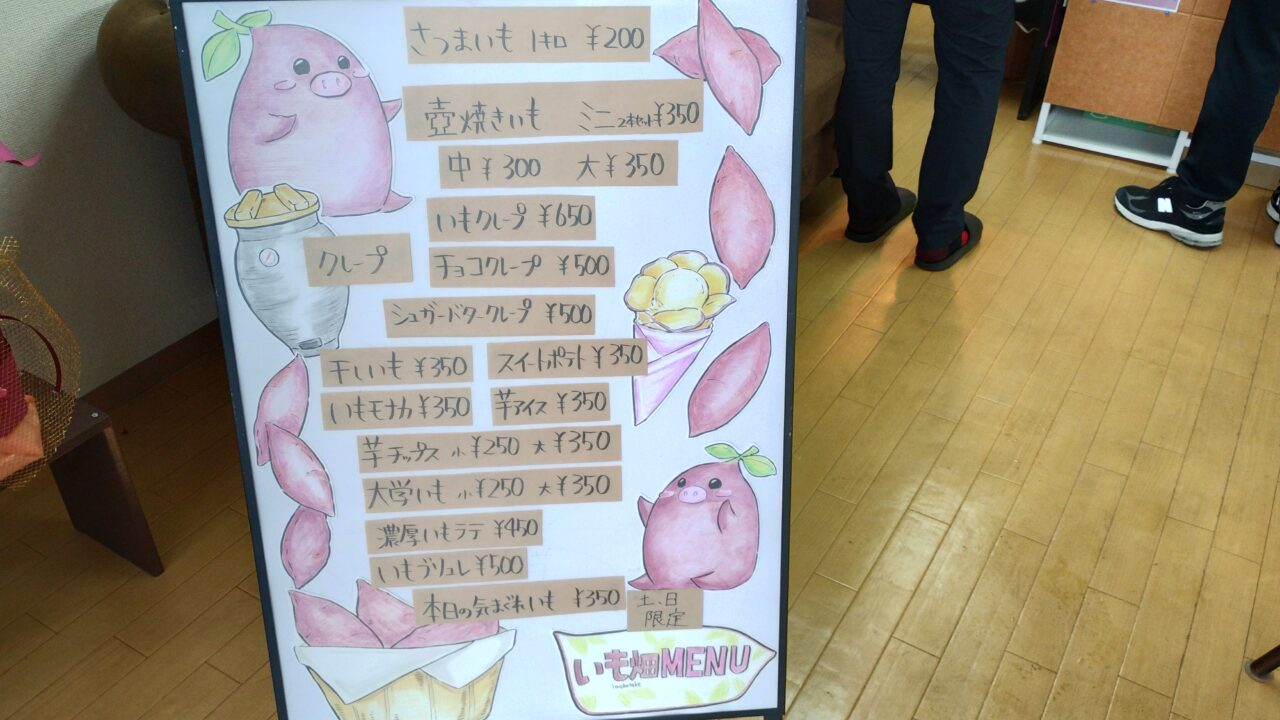 さつまいも 1キロ ¥200
壺焼きいも ミニ2本セット¥350
中¥300 大¥350
いもクレープ ¥650
クレープ チョコクレープ ¥500
シュガーバタークレープ ¥500
干しいも ¥350 スイートポテト ¥350
いもモナカ ¥350 芋アイス ¥350
芋チップス 小¥250 大¥350
大学いも 小¥250 大¥350
濃厚いもラテ ¥450
いもブリュレ ¥500
本日の気まぐれいも ¥350 土、日
限定
いも畑MENU